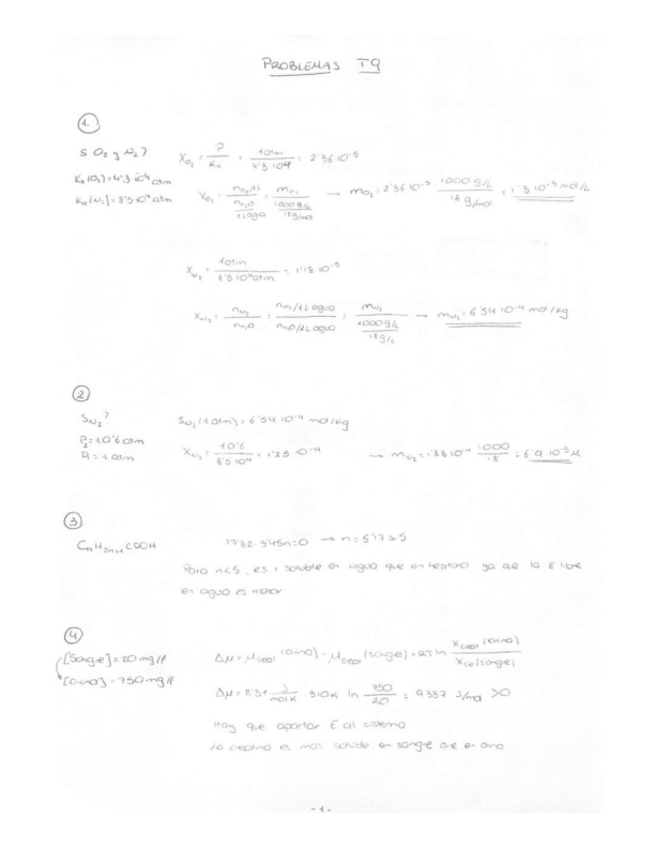 PROBLEMAS T9
1.
S O₂ y N₂?
K_H(O₂)=4'3·10⁴ atm
K_H(N₂)=8'5·10⁴ atm
X_O₂ = P/K_H = 1atm/4'3·10⁴ = 2'36 10⁻⁵
X_O₂ = (n_O₂/1L)/(n_H₂O/1L agua) = m_O₂/(1000 g/L / 18 g/mol) → m_O₂ = 2'36 10⁻⁵ 1000 g/L / 18 g/mol = 1'3 10⁻³ mol/L
X_N₂ = 1atm/8'5 10⁴atm = 1'18 10⁻⁵
X_N₂ = n_N₂/n_H₂O = (n_N₂/1L agua)/(n_H₂O/1L agua) = m_N₂/(1000 g/L / 18 g/L) → m_N₂ = 6'54 10⁻⁴ mol/kg
2
S_N₂?
P₂=10'6 atm
P₁=1 atm
S_N₂(1 atm)=6'54 10⁻⁴ mol/kg
X_N₂ = 10'6/8'5 10⁴ = 1'25 10⁻⁴ → 1000/18 = 6'9 10⁻³ M
3
CₙH₂ₙ₊₁COOH
17'82-3'45n=0 → n=5'17≈5
Para n<5, es + soluble en agua que en heptano ya que la E libre
en agua es menor
4
[Sangre]=20 mg/l
[Orina]=750 mg/l
Δμ = (orina) - (sangre) = RT ln X (orina)/X (sangre)
Δμ = 8'31 J/mol K 310K ln 750/20 = 9337 J/mol >0
Hay que aportar E al sistema
La es más soluble en sangre que en orina
- 1 -